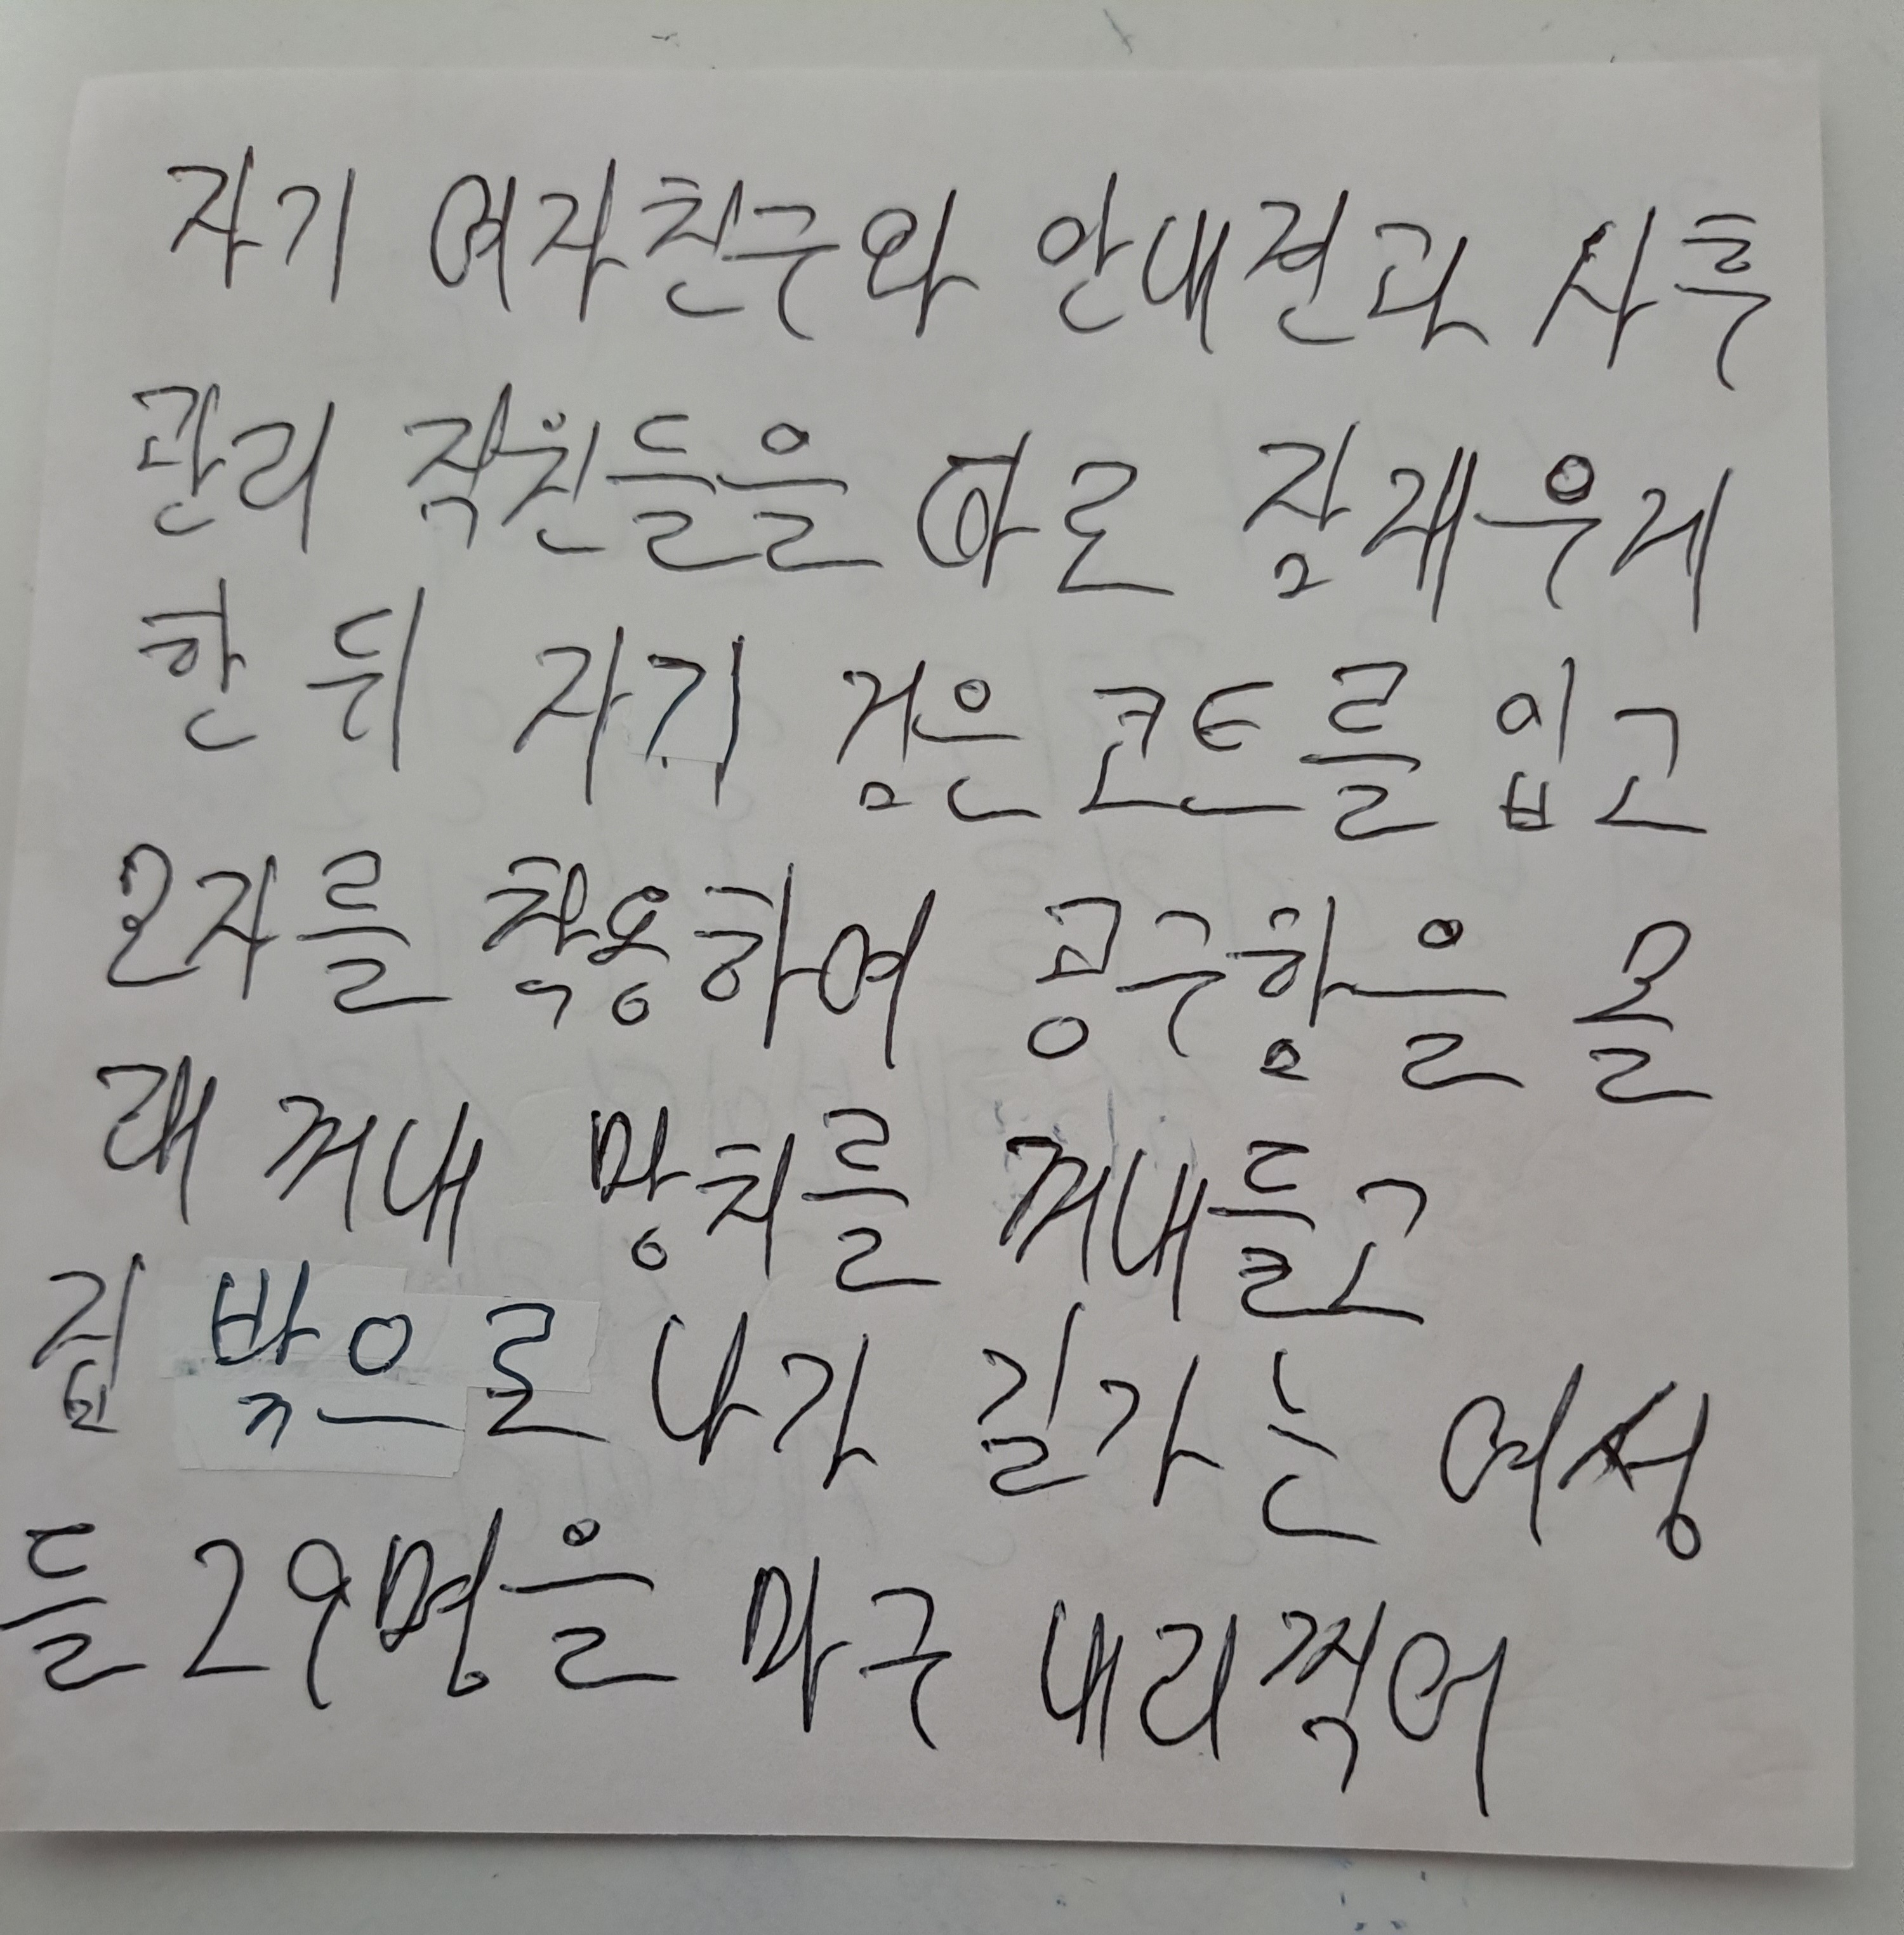 자기 여자친구와 안내견과 사후
관리 직원들을 따로 잠재우게
한 뒤 자기 검은 코트를 입고
모자를 착용하여 공구함을 몰
래 꺼내 망치를 꺼내들고
집 밖으로 나가 길가는 여성
들 29명을 마구 내리찍어